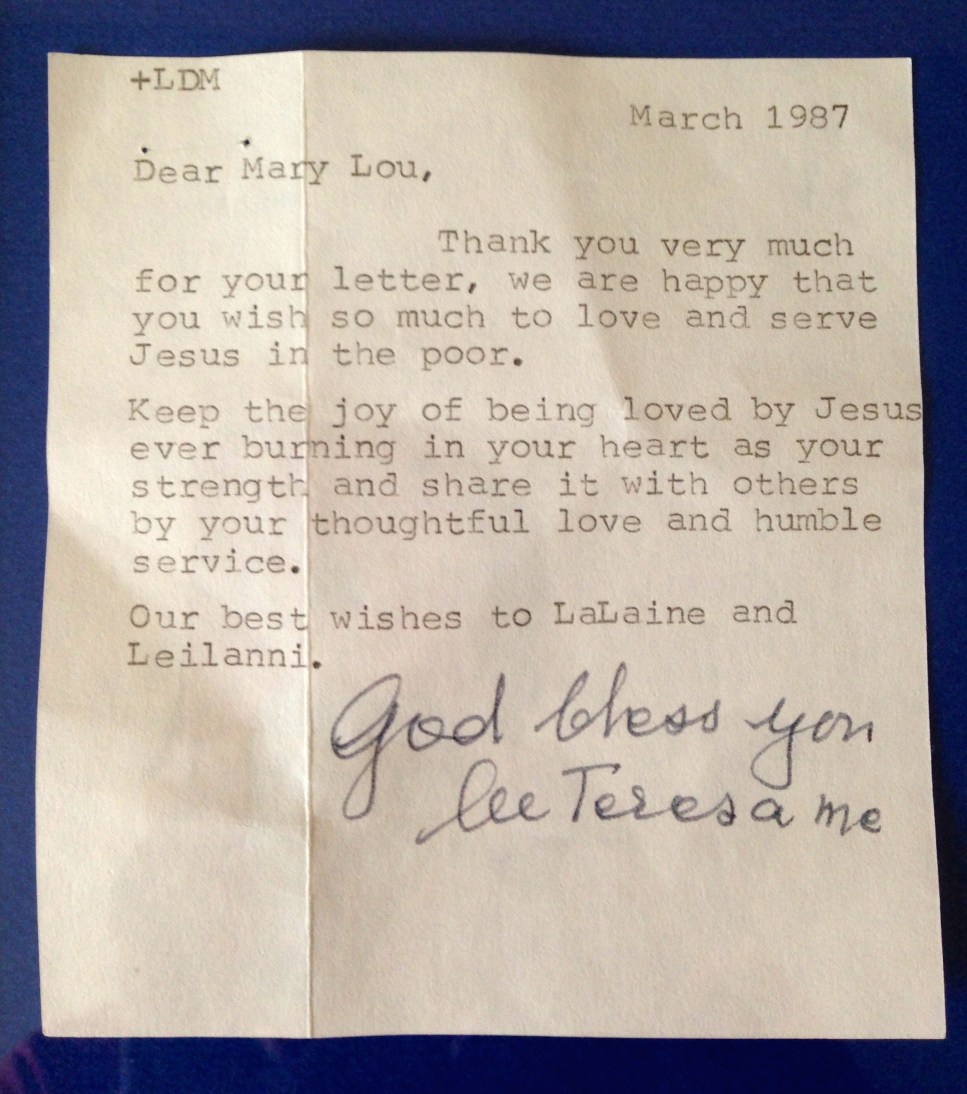 +LDM
March 1987
Dear Mary Lou,
Thank you very much
for your letter, we are happy that
you wish so much to love and serve
Jesus in the poor.
Keep the joy of being loved by Jesus
ever burning in your heart as your
strength and share it with others
by your thoughtful love and humble
service.
Our best wishes to LaLaine and
Leilanni.
God bless you
lee Teresa me